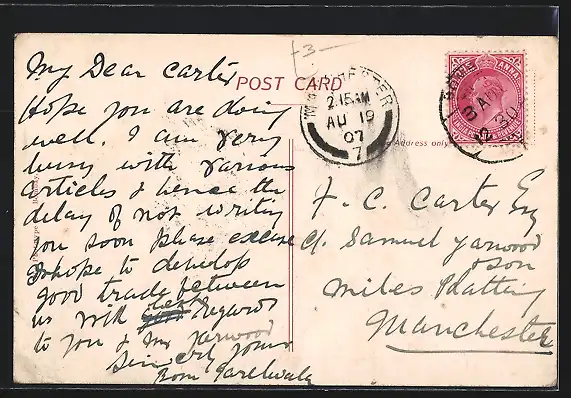 My Dear Carter
Hope you are doing
well. I am very
busy with various
articles & hence the
delay of not writing
you soon please excuse
& hope to develop
good trade between
us with best regards
to you & Mr Yarwood
Sincerely yours
POST CARD
Address only
MANCHESTER
2.15AM
AU 19
07
7
ANNA
F. C. Carter Esq
c/. Samuel Yarwood
& son
Miles Platting
Manchester